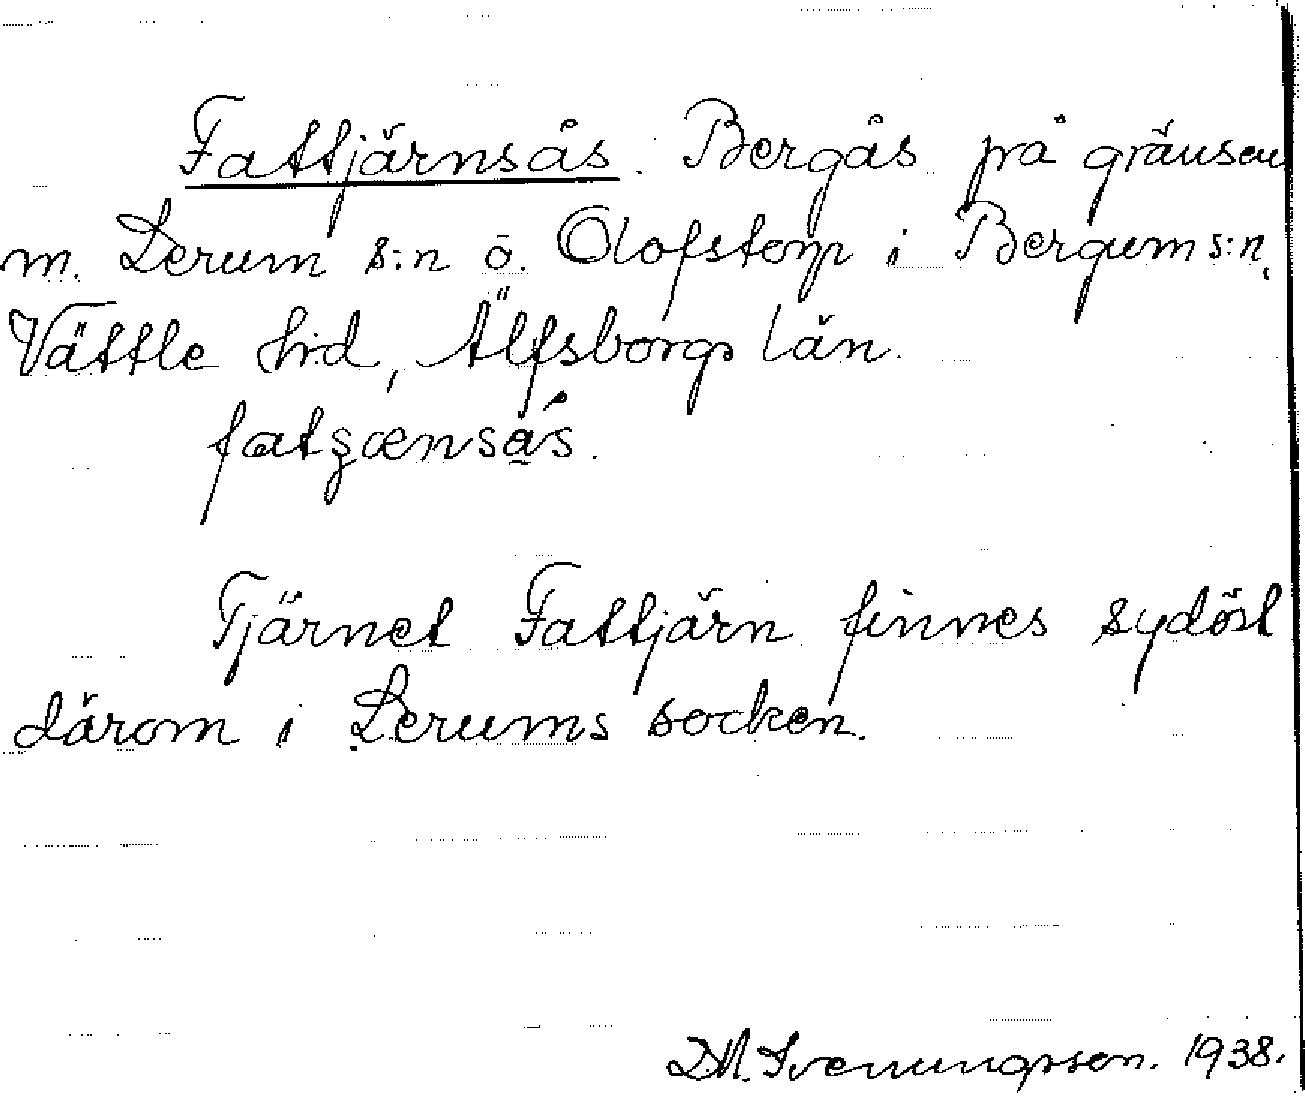 Fattjärnsås. Bergås på gränsen
m. Lerum s:n ö. Olofstorp i Bergum s:n,
Vättle hd, Älfsborgs län.
fatjænsås.
Tjärnet Fattjärn finnes sydöst
därom i Lerums socken.
D.M. Svenungsson. 1938.